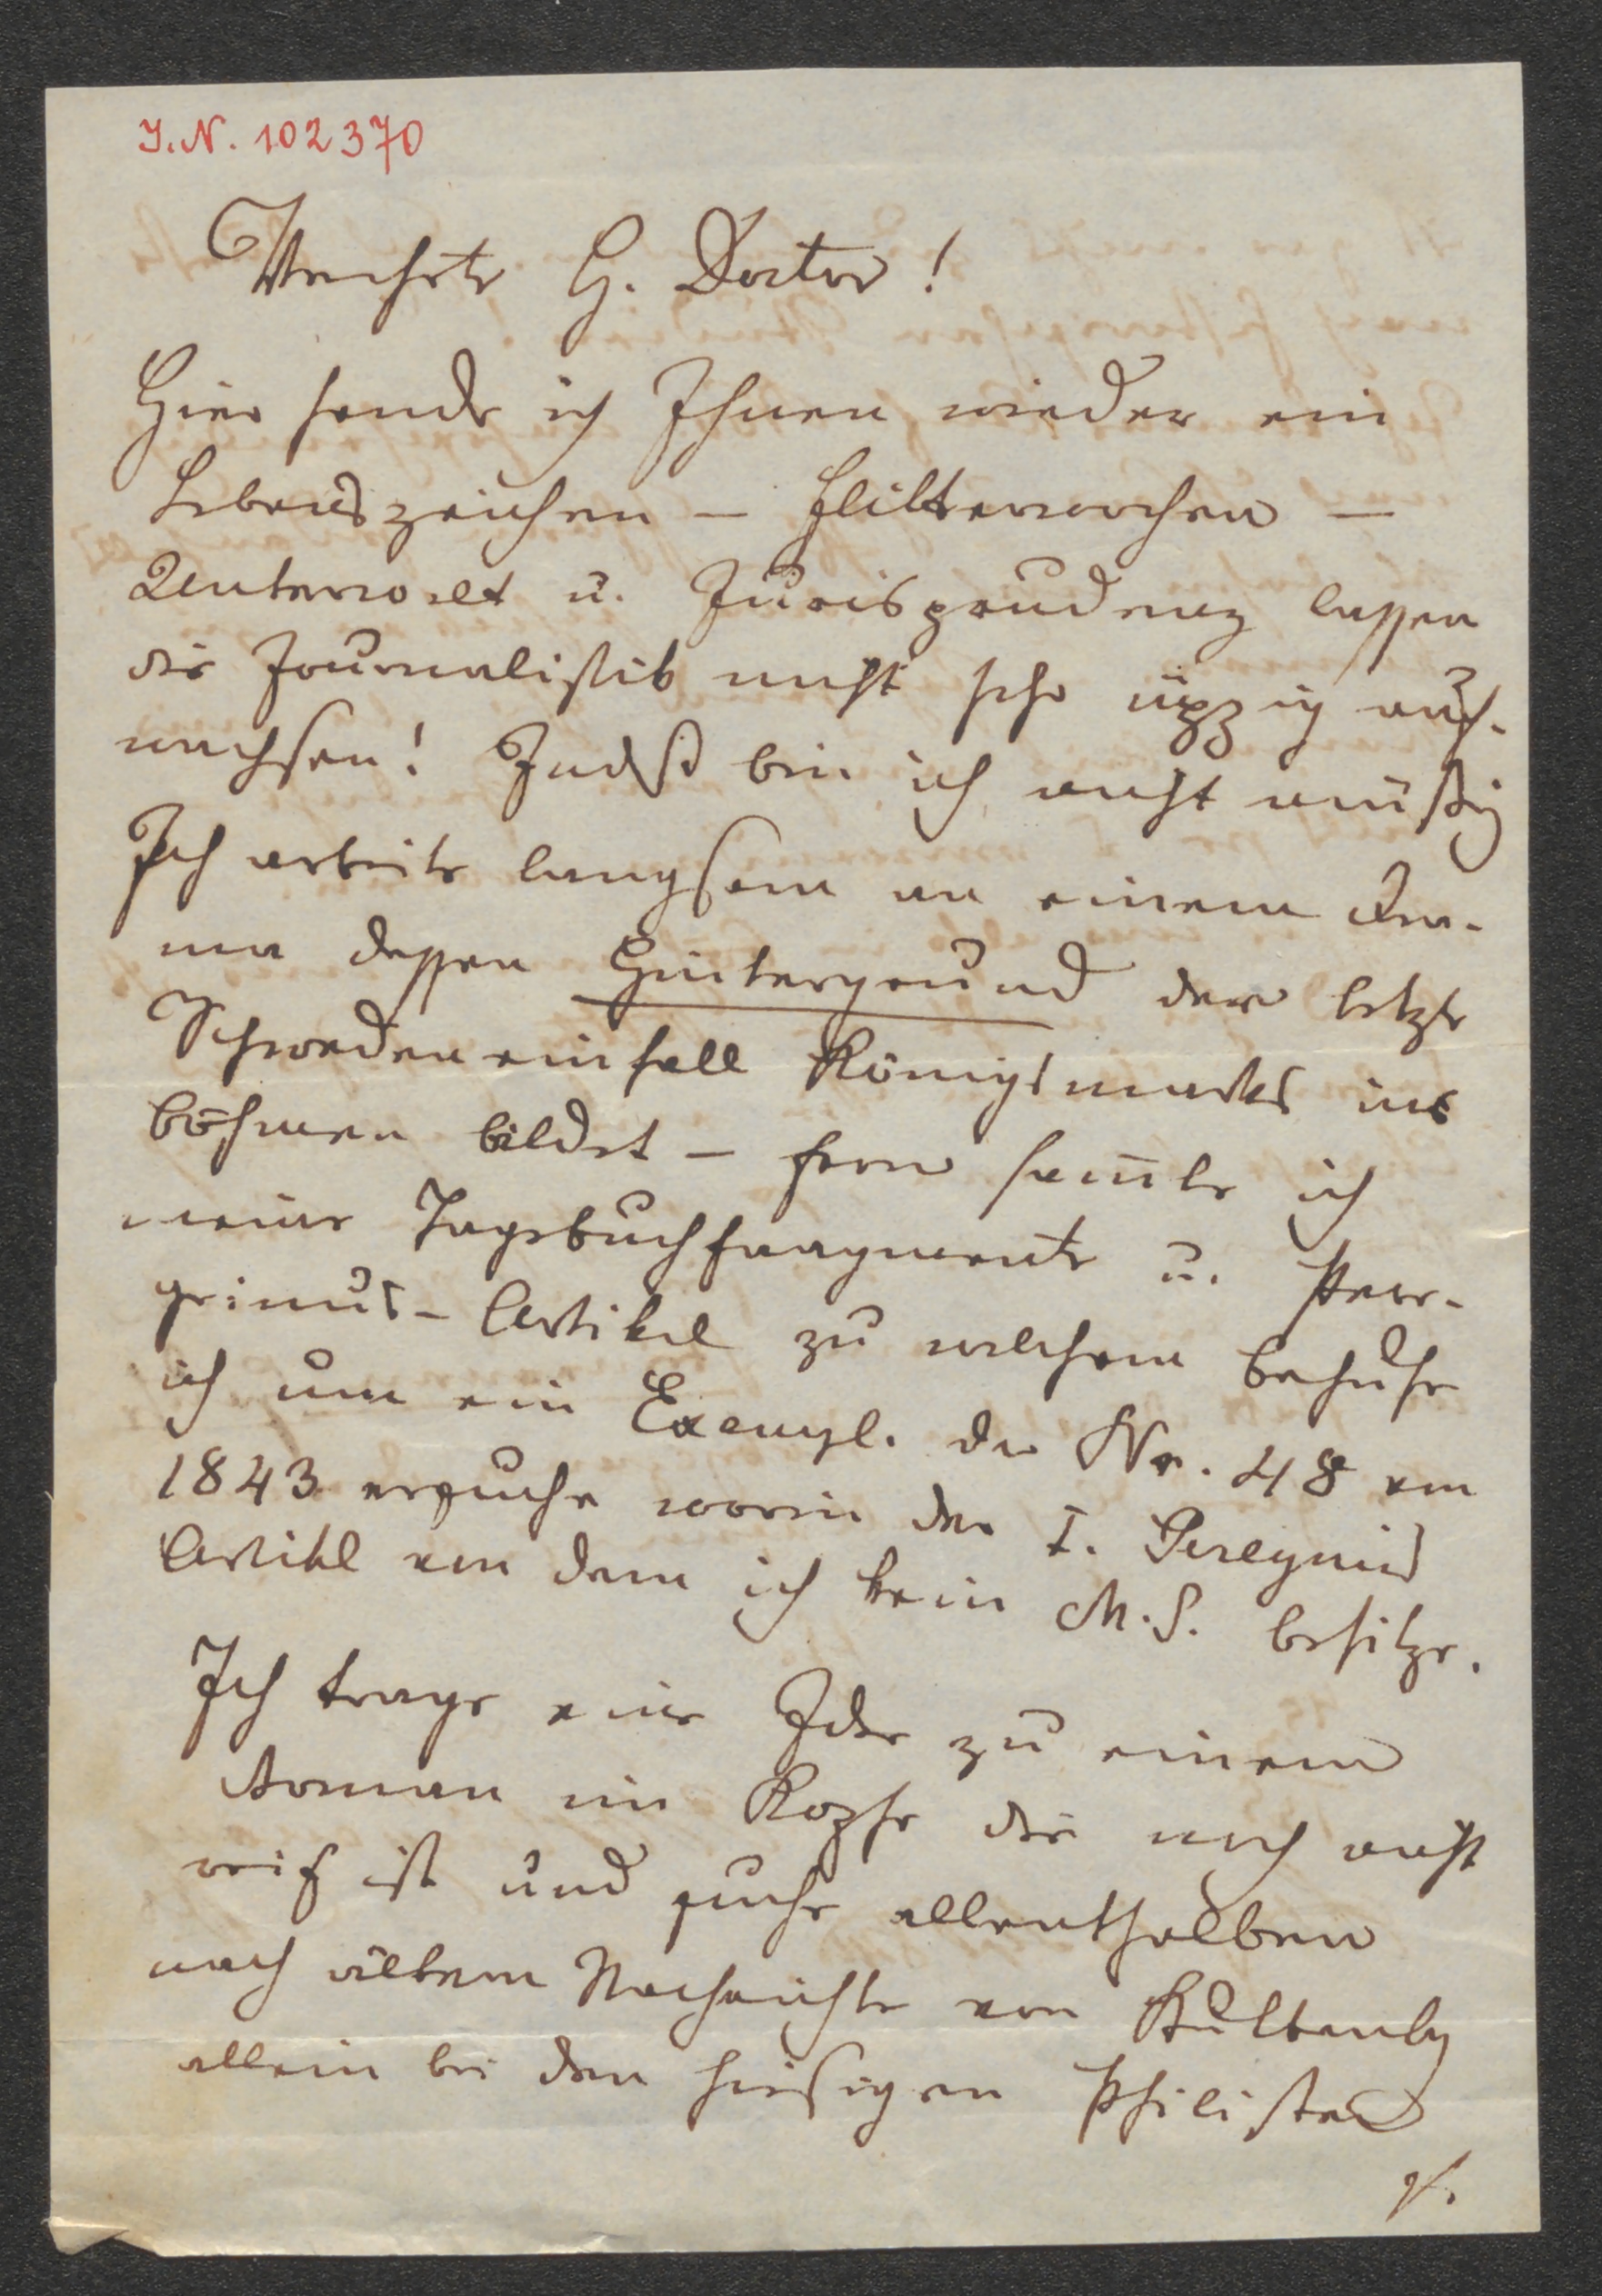 I.N. 102370
Verehrter H. Doctor!
Hier sende ich Ihnen wieder ein
Lebenszeichen – Flitterwochen –
u. Jurisprudenz lassen
die Journalistik nicht sehr üppig auf-
wachsen! Indeß bin ich nicht müßig
Ich arbeite langsam an einem Dra-
ma dessen Hintergrund der letzte
Schwedeneinfall Königsmarks in
Böhmen bildet – ferner sam̄le ich
meine Tagebuchfragmente u. Pere-
grinus-Artikel zu welchem Behufe
ich um ein Exempl. der Nr. 48 von
1843 ersuche worin der I. Peregrinus
Artikel von dem ich kein M.S. besitze.
Ich trage eine Idee zu einem
Roman im Kopfe die noch nicht
reif ist und suche allenthalben
nach Nachrichten von
allein bei den hiesigen Philistern